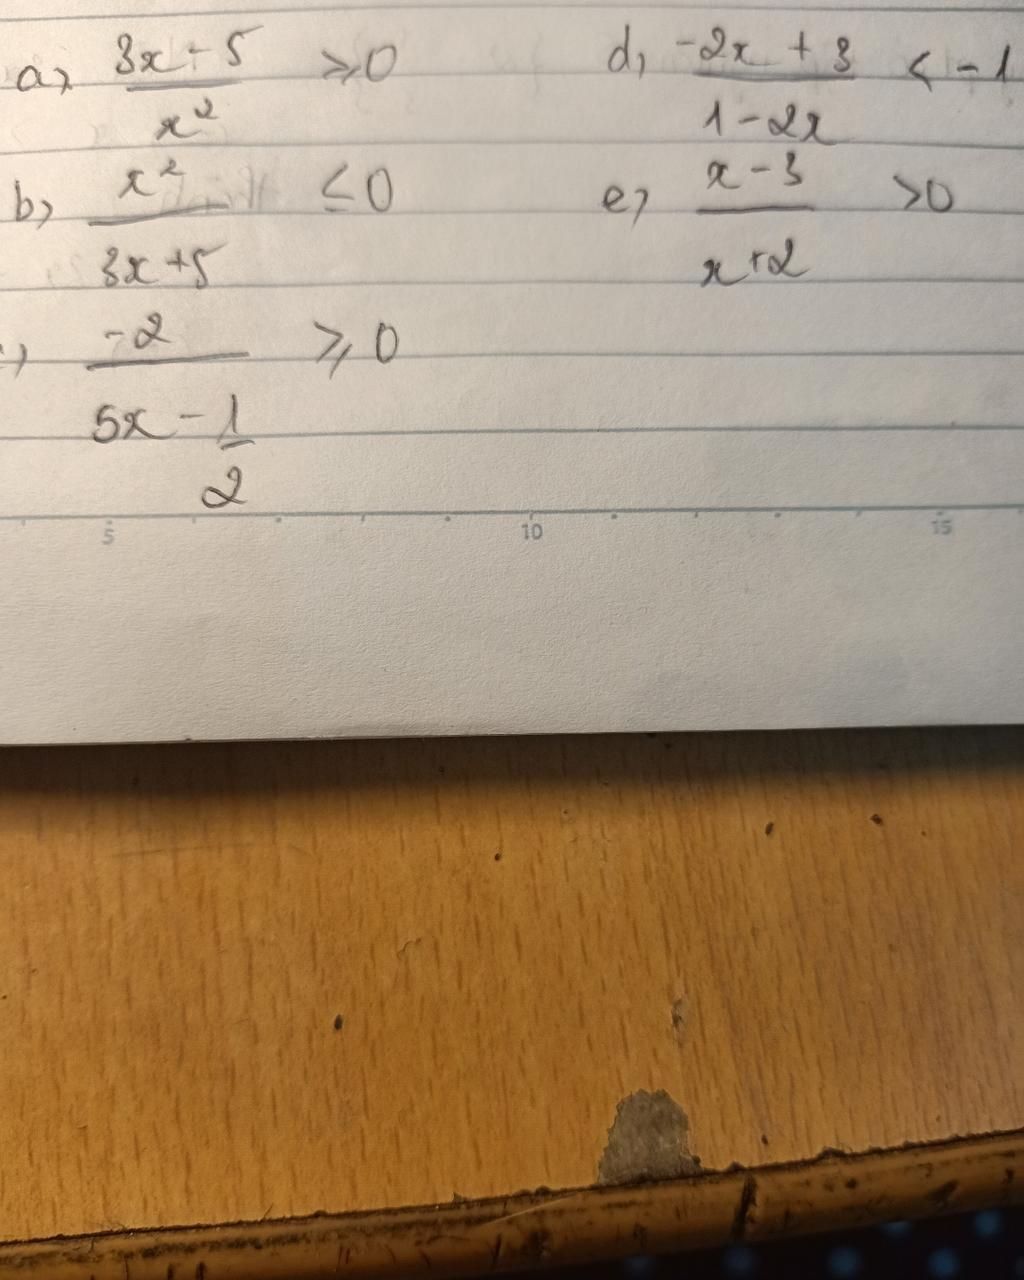 a) (3x - 5)/x² ≥ 0
b) x²/(3x + 5) ≤ 0
c) -2/(5x - 1/2) ≥ 0
d) (-2x + 3)/(1 - 2x) < -1
e) (x - 3)/(x + 2) > 0
5 10 15